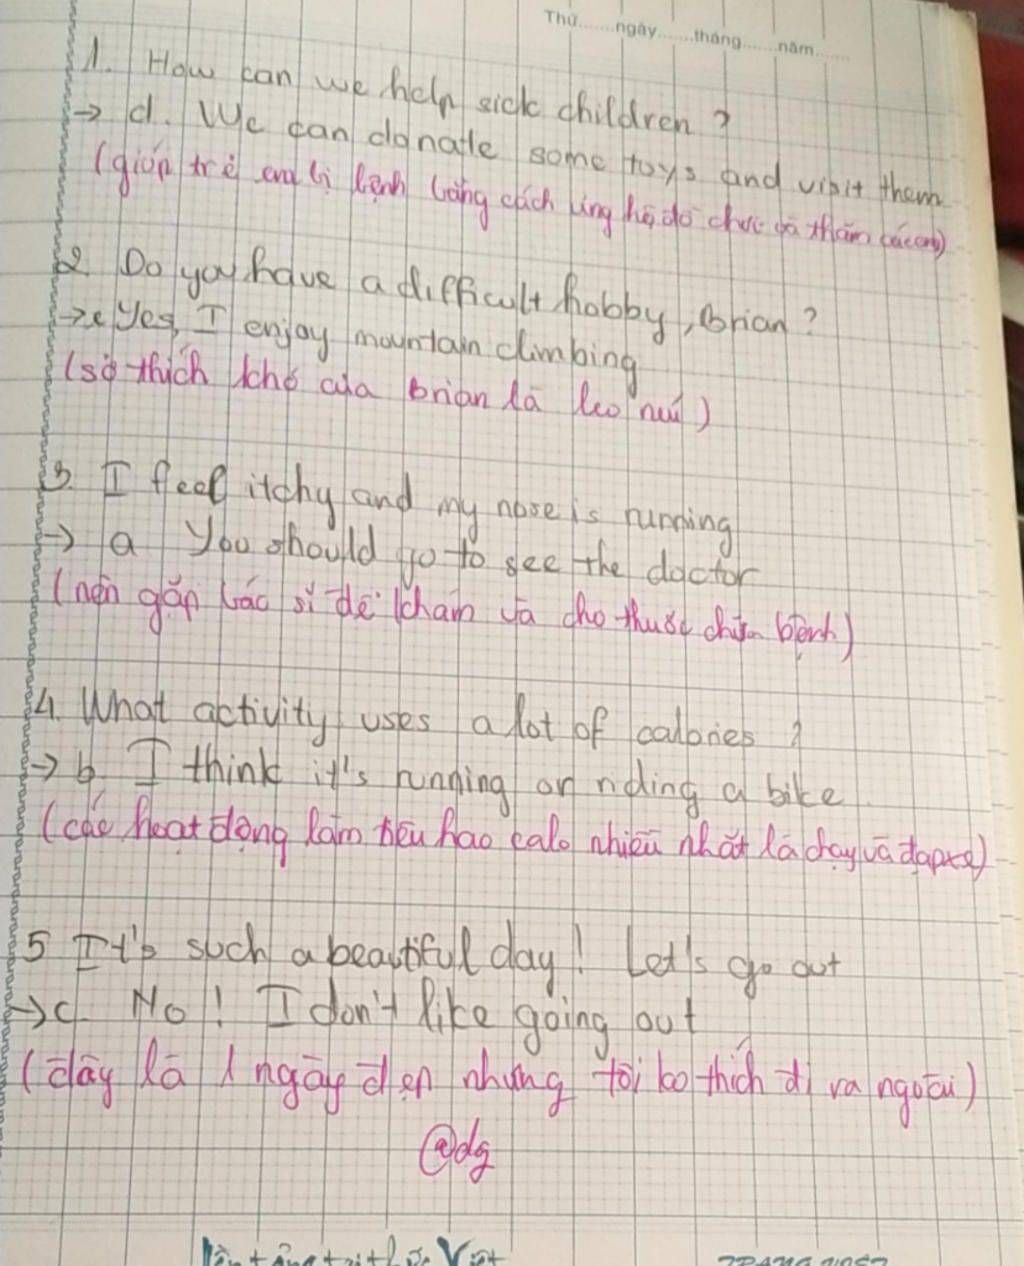 Thứ.......ngày.......tháng.......năm......
1. How can we help sick children?
→ d. We can donate some toys and visit them
(giúp trẻ em bị bệnh bằng cách ủng hộ đồ chơi và thăm các em)
2. Do you have a difficult hobby, Brian?
→ e Yes, I enjoy mountain climbing
(sở thích khó của brian là leo núi)
3. I feel itchy and my nose is running
→ a You should go to see the doctor
(nên gặp bác sĩ để khám và cho thuốc chữa bệnh)
4. What activity uses a lot of calories?
→ b. I think it's running or riding a bike.
(các hoạt động làm tiêu hao calo nhiều nhất là chạy và đạp xe)
5 It's such a beautiful day! Let's go out
→ c. No! I don't like going out
(đây là 1 ngày đẹp nhưng tôi ko thích đi ra ngoài)
@dg